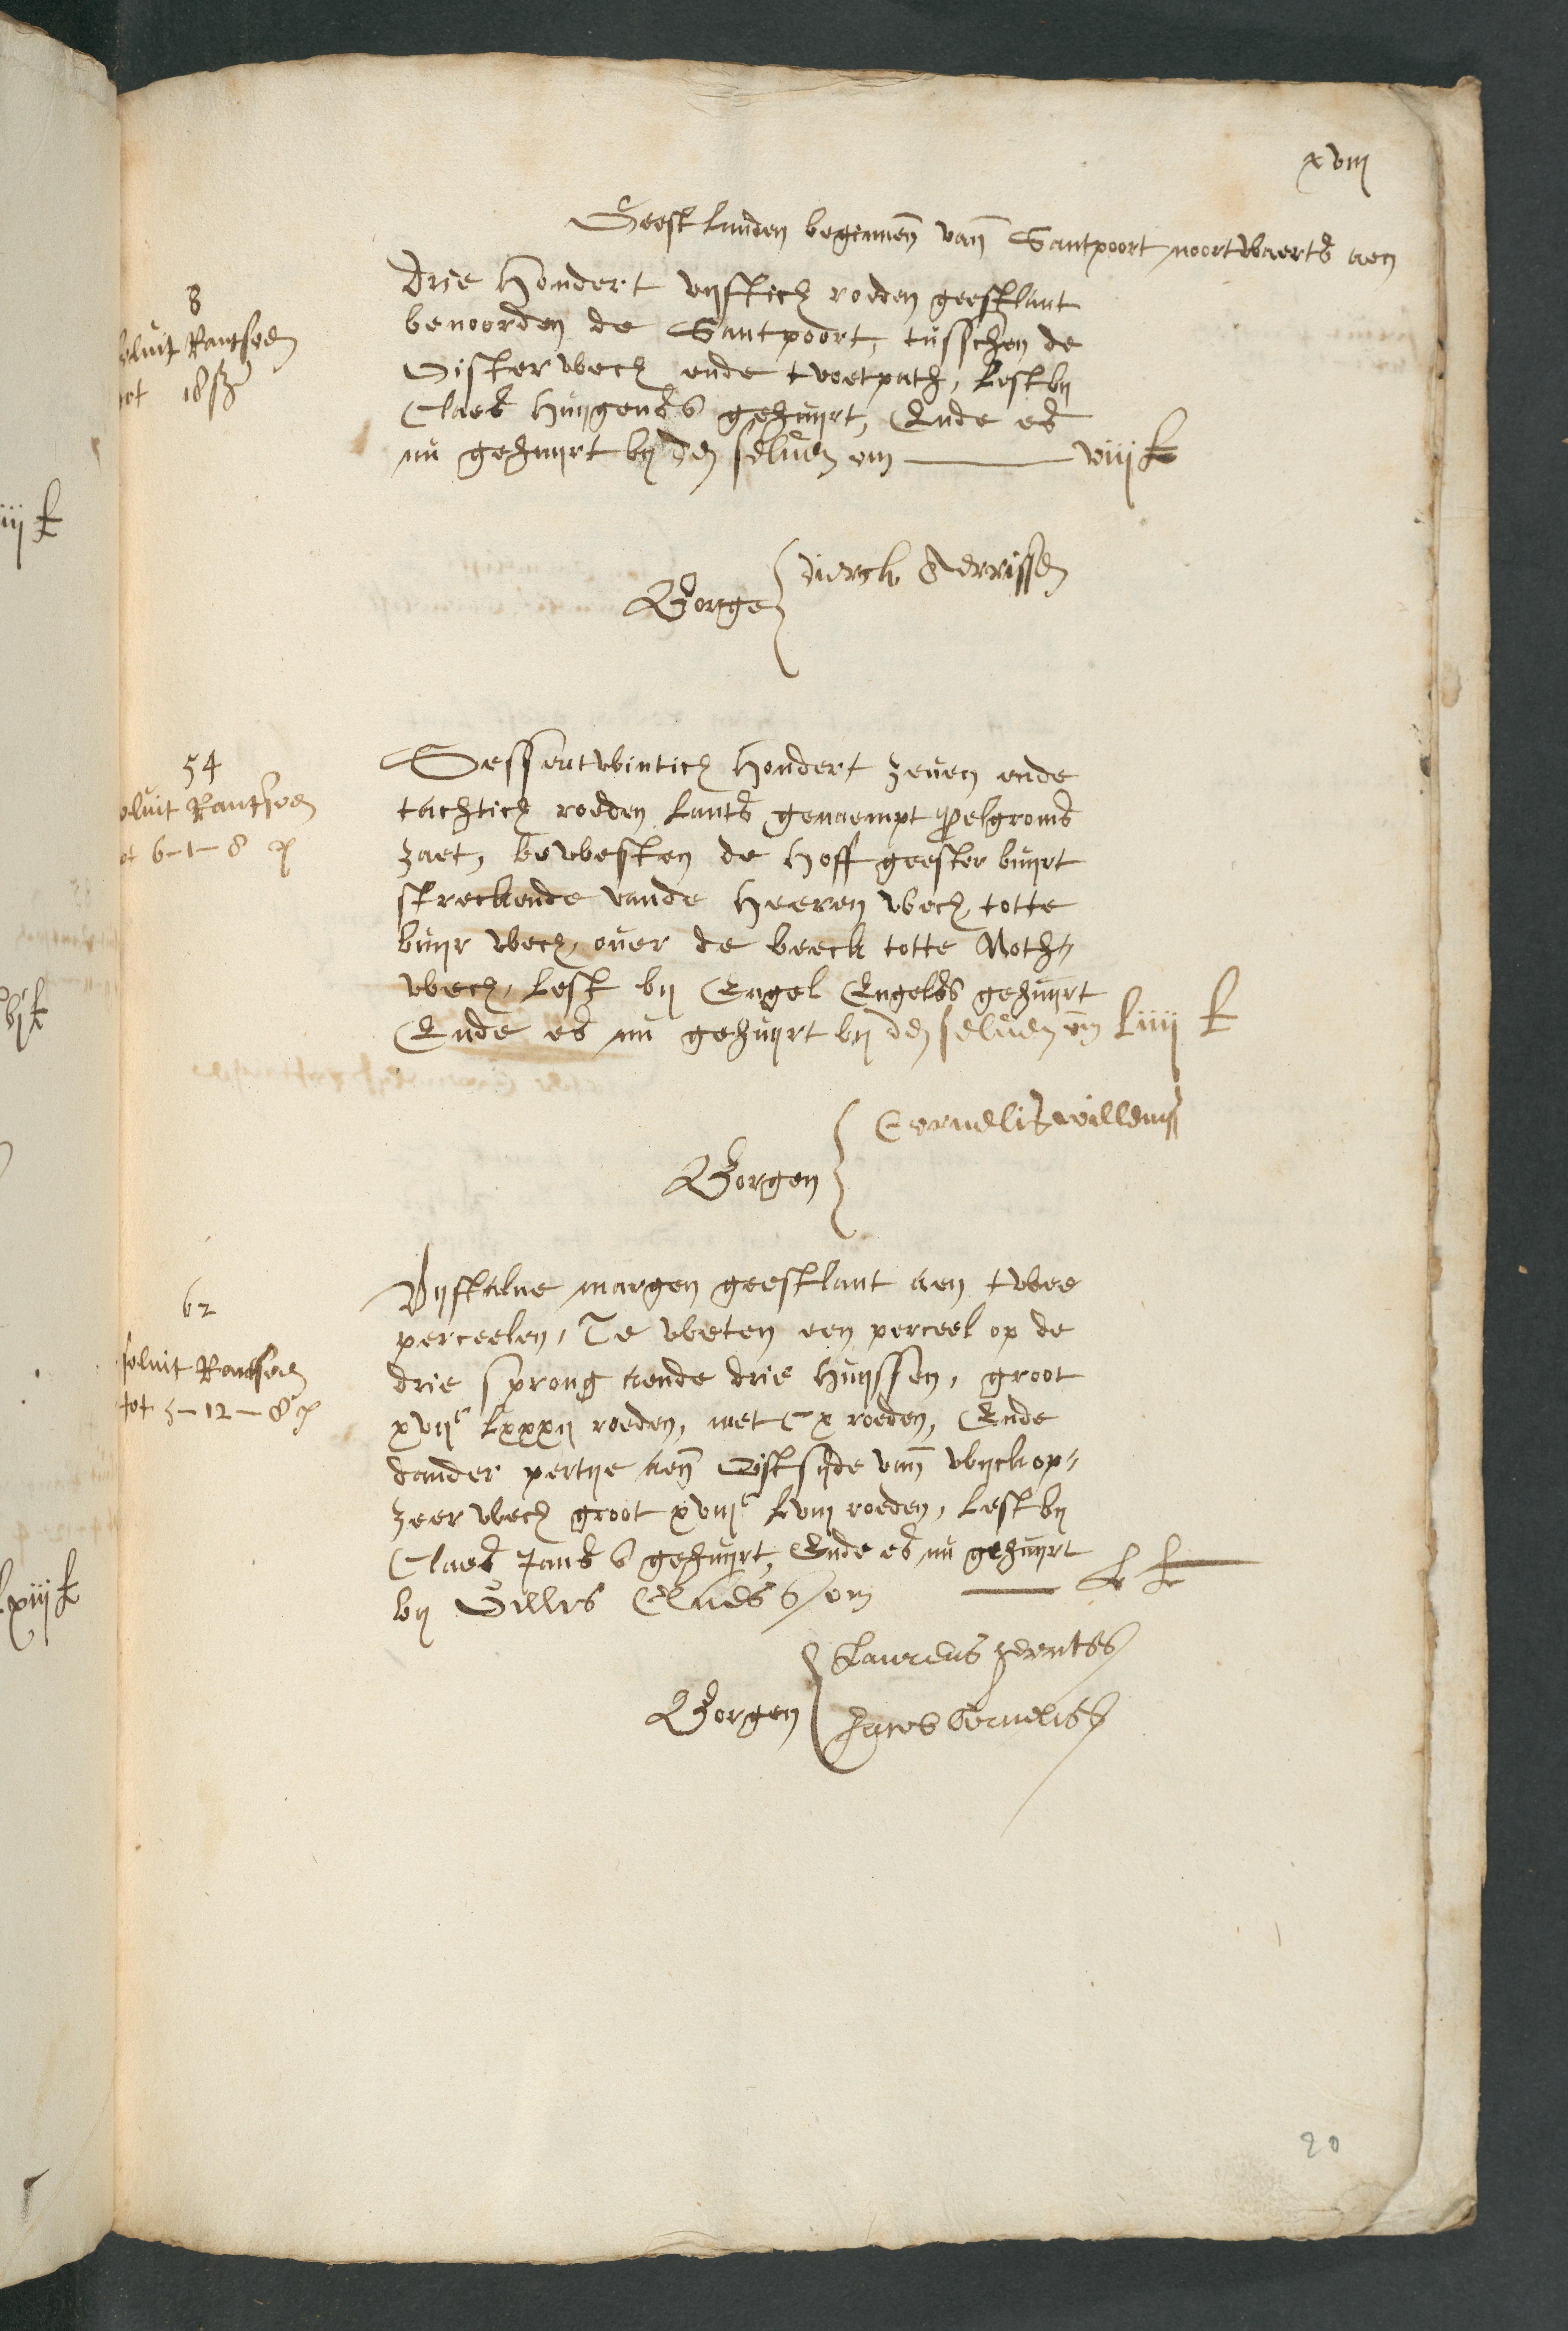 xviij
Geestlanden beginnen van Santpoort noortwaerts aen
8
solvit Rantsoen
tot 18 ß
Drie hondert vijftich roeden geestlant
benoorden de Santpoort, tusschen de
Oisterwech ende tvoetpath, Lest bij
Claes Huijgens gehuijrt, Ende es
nu gehuijrt bij den selven om viij £
Borge
Dierck Gerrissen
54
solvit Rantsoen
tot 6-1-8
Sessentwintich hondert zeven ende
tachtich roeden Lants genaempt Pelgroms
zaet, bewesten de Hoffgeester buijrt
streckende vande Heeren wech totte
buijr wech, over de beeck totte Noth-
wech, Lest bij Engel Engels gehuijrt
Ende es nu gehuijrt bij den selven om Liiij £
Borgen
Cornelis willems
62
solvit Rantsoen
tot 5-12-8
Vijftalve margen geestlant aen twee
perceelen, Te weten een perceel op de
drie sprong aende drie huijssen, groot
xvijc Lxxxij roeden, met Cx roeden, Ende
dander pertije aen Oistsijde van wijckop-
zeer wech groot xviijc Lviij roeden, Lest bij
Claes Jans gehuijrt, Ende es nu gehuijrt
bij Gillis Claess om L £
Borgen
Laurens
Jacob Corneliss
20